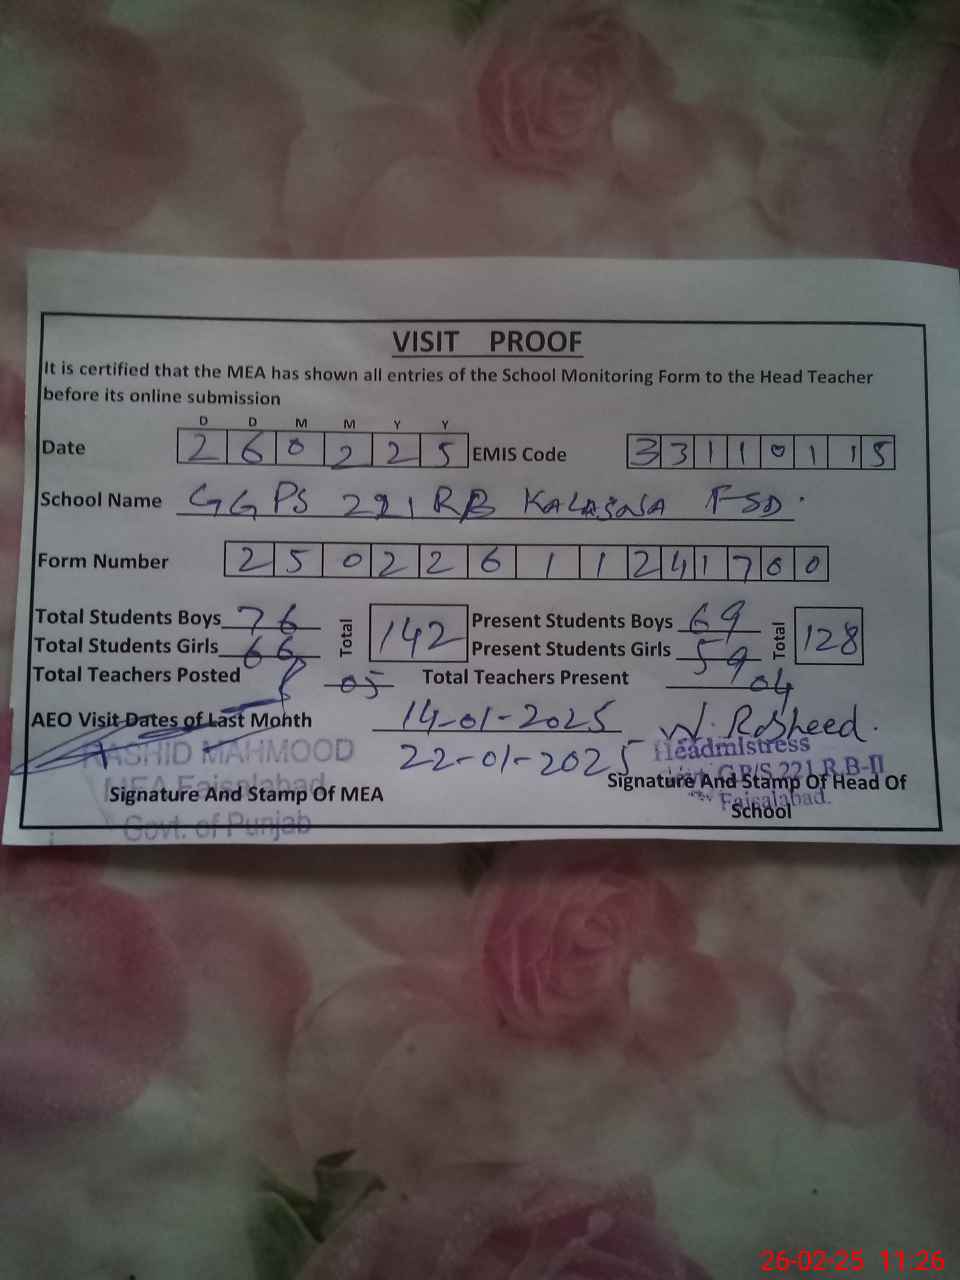 VISIT PROOF
It is certified that the MEA has shown all entries of the School Monitoring Form to the Head Teacher
before its online submission
D D M M Y Y
Date 2 6 0 2 2 5 EMIS Code 3 3 1 1 0 1 1 5
School Name GGPS 221 RB KALASWALA FSD.
Form Number 2 5 0 2 2 6 1 1 2 4 1 7 0 0
Total Students Boys 76 Total 142 Present Students Boys 69 Total 128
Total Students Girls 66 Present Students Girls 59
Total Teachers Posted 05 Total Teachers Present 04
AEO Visit Dates of Last Month 14-01-2025 W. Rasheed.
22-01-2025
RASHID MAHMOOD Headmistress
MEA Faisalabad G.P/S 221 R.B-II
Signature And Stamp Of MEA Signature And Stamp Of Head Of
Govt. of Punjab Faisalabad.
School
26-02-25 11:26